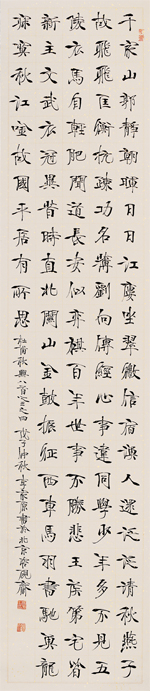 千家山郭靜朝暉日日江樓坐翠微信宿漁人還泛泛清秋燕子
故飛飛匡衡抗疏功名薄劉向傳經心事違同學少年多不賤五
陵衣馬自輕肥聞道長安似弈棋百年世事不勝悲王侯第宅皆
新主文武衣冠異昔時直北關山金鼓振征西車馬羽書馳魚龍
寂寞秋江冷故國平居有所思 杜甫秋興八首之三之四 戊子仲秋 書於北京 硯齋